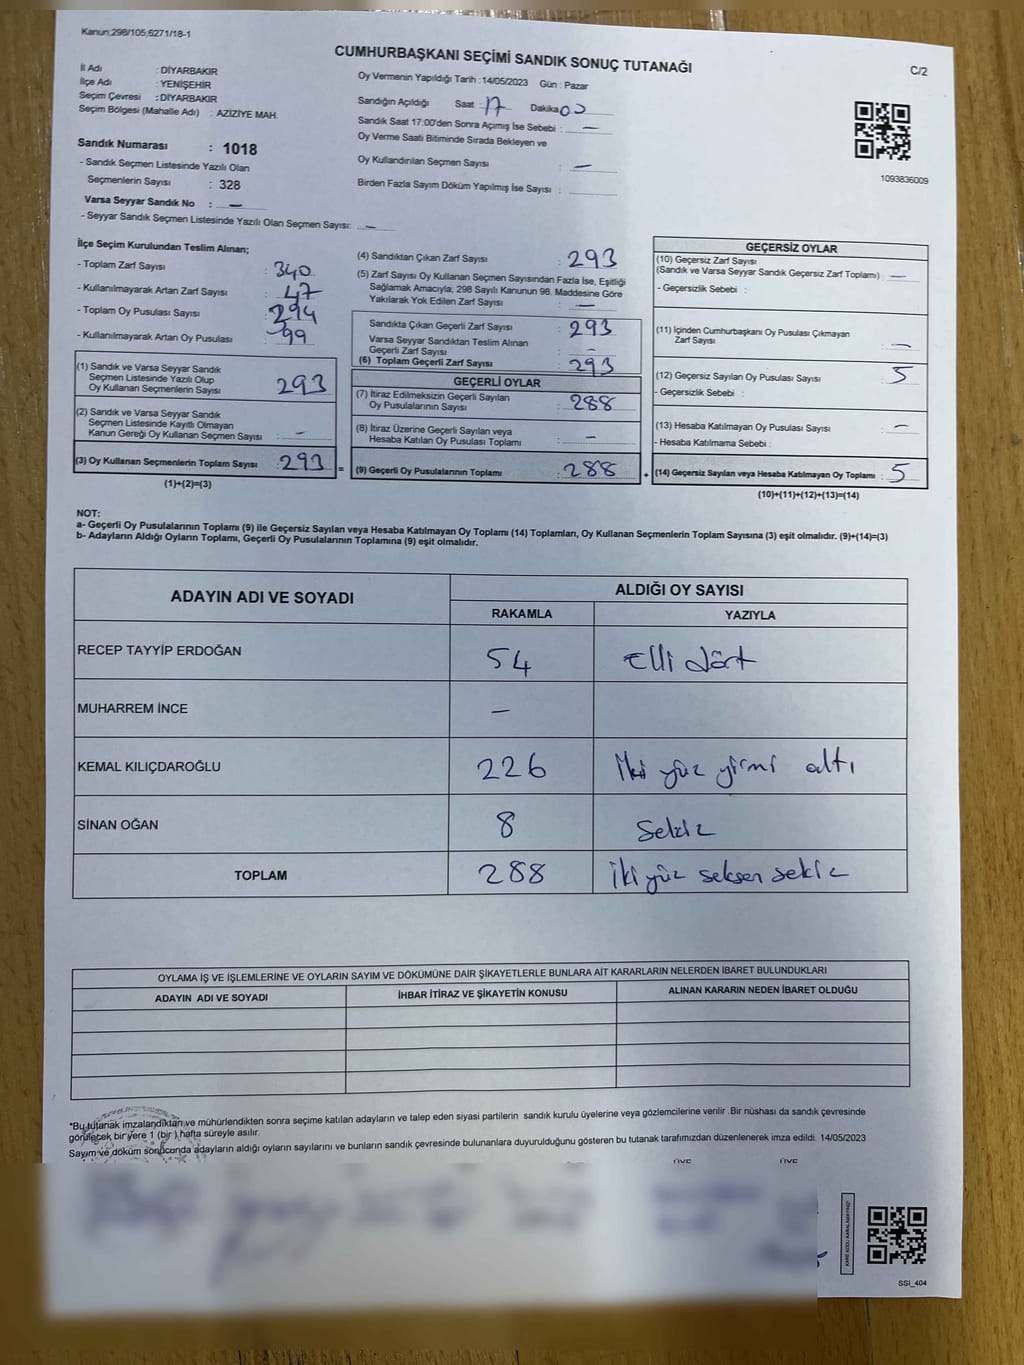 Kanun;298/105;6271/18-1
CUMHURBAŞKANI SEÇİMİ SANDIK SONUÇ TUTANAĞI
C/2
İl Adı : DİYARBAKIR
İlçe Adı : YENİŞEHİR
Seçim Çevresi : DİYARBAKIR
Seçim Bölgesi (Mahalle Adı) : AZİZİYE MAH.
Sandık Numarası : 1018
- Sandık Seçmen Listesinde Yazılı Olan
Seçmenlerin Sayısı : 328
Varsa Seyyar Sandık No : -
- Seyyar Sandık Seçmen Listesinde Yazılı Olan Seçmen Sayısı: -
Oy Vermenin Yapıldığı Tarih : 14/05/2023 Gün : Pazar
Sandığın Açıldığı Saat : 17 Dakika 00
Sandık Saat 17:00'den Sonra Açımış İse Sebebi : -
Oy Verme Saati Bitiminde Sırada Bekleyen ve
Oy Kullandırılan Seçmen Sayısı : -
Birden Fazla Sayım Döküm Yapılmış İse Sayısı :
1093836009
İlçe Seçim Kurulundan Teslim Alınan;
- Toplam Zarf Sayısı : 340
- Kullanılmayarak Artan Zarf Sayısı : 47
- Toplam Oy Pusulası Sayısı : 294
- Kullanılmayarak Artan Oy Pusulası : 99
(1) Sandık ve Varsa Seyyar Sandık
Seçmen Listesinde Yazılı Olup
Oy Kullanan Seçmenlerin Sayısı : 293
(2) Sandık ve Varsa Seyyar Sandık
Seçmen Listesinde Kayıtlı Olmayan
Kanun Gereği Oy Kullanan Seçmen Sayısı : -
(3) Oy Kullanan Seçmenlerin Toplam Sayısı : 293
(1)+(2)=(3)
(4) Sandıktan Çıkan Zarf Sayısı : 293
(5) Zarf Sayısı Oy Kullanan Seçmen Sayısından Fazla İse, Eşitliği
Sağlamak Amacıyla; 298 Sayılı Kanunun 98. Maddesine Göre
Yakılarak Yok Edilen Zarf Sayısı : -
Sandıkta Çıkan Geçerli Zarf Sayısı : 293
Varsa Seyyar Sandıktan Teslim Alınan
Geçerli Zarf Sayısı : -
(6) Toplam Geçerli Zarf Sayısı : 293
GEÇERLİ OYLAR
(7) İtiraz Edilmeksizin Geçerli Sayılan
Oy Pusulalarının Sayısı : 288
(8) İtiraz Üzerine Geçerli Sayılan veya
Hesaba Katılan Oy Pusulası Toplamı : -
= (9) Geçerli Oy Pusulalarının Toplamı : 288
GEÇERSİZ OYLAR
(10) Geçersiz Zarf Sayısı
(Sandık ve Varsa Seyyar Sandık Geçersiz Zarf Toplamı) : -
- Geçersizlik Sebebi :
(11) İçinden Cumhurbaşkanı Oy Pusulası Çıkmayan
Zarf Sayısı : -
(12) Geçersiz Sayılan Oy Pusulası Sayısı : 5
- Geçersizlik Sebebi :
(13) Hesaba Katılmayan Oy Pusulası Sayısı : -
- Hesaba Katılmama Sebebi :
+ (14) Geçersiz Sayılan veya Hesaba Katılmayan Oy Toplamı : 5
(10)+(11)+(12)+(13)=(14)
NOT:
a- Geçerli Oy Pusulalarının Toplamı (9) ile Geçersiz Sayılan veya Hesaba Katılmayan Oy Toplamı (14) Toplamları, Oy Kullanan Seçmenlerin Toplam Sayısına (3) eşit olmalıdır. (9)+(14)=(3)
b- Adayların Aldığı Oyların Toplamı, Geçerli Oy Pusulalarının Toplamına (9) eşit olmalıdır.
ADAYIN ADI VE SOYADI ALDIĞI OY SAYISI
RAKAMLA YAZIYLA
RECEP TAYYİP ERDOĞAN 54 Elli dört
MUHARREM İNCE -
KEMAL KILIÇDAROĞLU 226 İki yüz yirmi altı
SİNAN OĞAN 8 Sekiz
TOPLAM 288 İki yüz seksen sekiz
OYLAMA İŞ VE İŞLEMLERİNE VE OYLARIN SAYIM VE DÖKÜMÜNE DAİR ŞİKAYETLERLE BUNLARA AİT KARARLARIN NELERDEN İBARET BULUNDUKLARI
ADAYIN ADI VE SOYADI İHBAR İTİRAZ VE ŞİKAYETİN KONUSU ALINAN KARARIN NEDEN İBARET OLDUĞU
*Bu tutanak imzalandıktan ve mühürlendikten sonra seçime katılan adayların ve talep eden siyasi partilerin sandık kurulu üyelerine veya gözlemcilerine verilir .Bir nüshası da sandık çevresinde
görülecek bir yere 1 (bir ) hafta süreyle asılır.
Sayım ve döküm sonucunda adayların aldığı oyların sayılarını ve bunların sandık çevresinde bulunanlara duyurulduğunu gösteren bu tutanak tarafımızdan düzenlenerek imza edildi. 14/05/2023
ÜYE ÜYE
KARE KODU KARALAMAYINIZ!
SSI_404